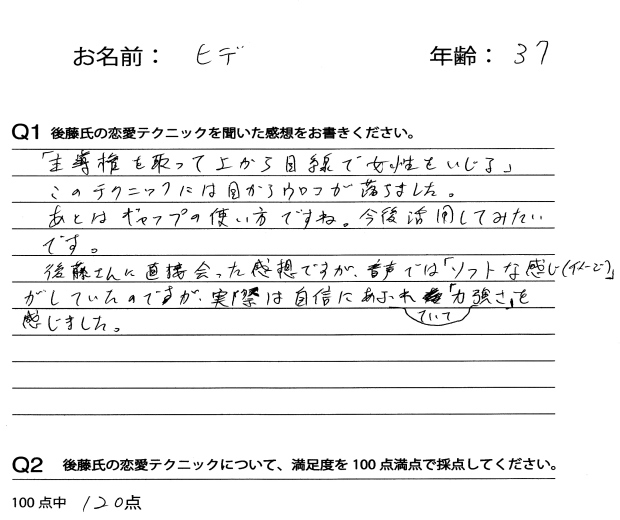 お名前： ヒデ 年齢： 37
Q1 後藤氏の恋愛テクニックを聞いた感想をお書きください。
「主導権を取って上から目線で女性をいじる」
このテクニックには目からウロコが落ちました。
あとはギャップの使い方ですね。今後活用してみたい
です。
後藤さんに直接会った感想ですが、音声では「ソフトな感じ(イメージ)」
がしていたのですが、実際は自信にあふれ「力強さ」を
ていて
感じました。
Q2 後藤氏の恋愛テクニックについて、満足度を100点満点で採点してください。
100点中 120点